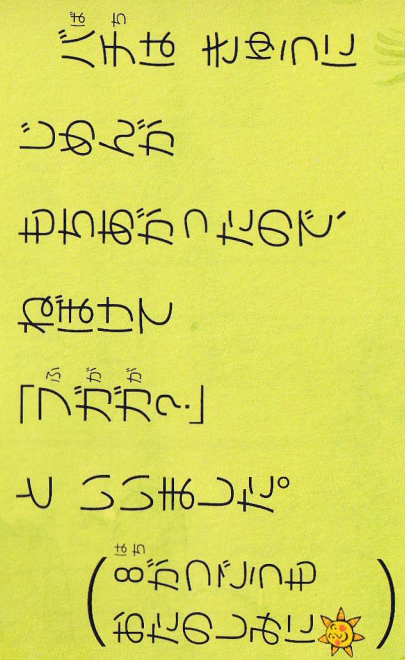 ばち
バチは きゅうに
じめんが
もちあがったので、
ねぼけて
ぶがが
「ブガガ?」
と いいました。
はち
(8がつごうも
おたのしみに)